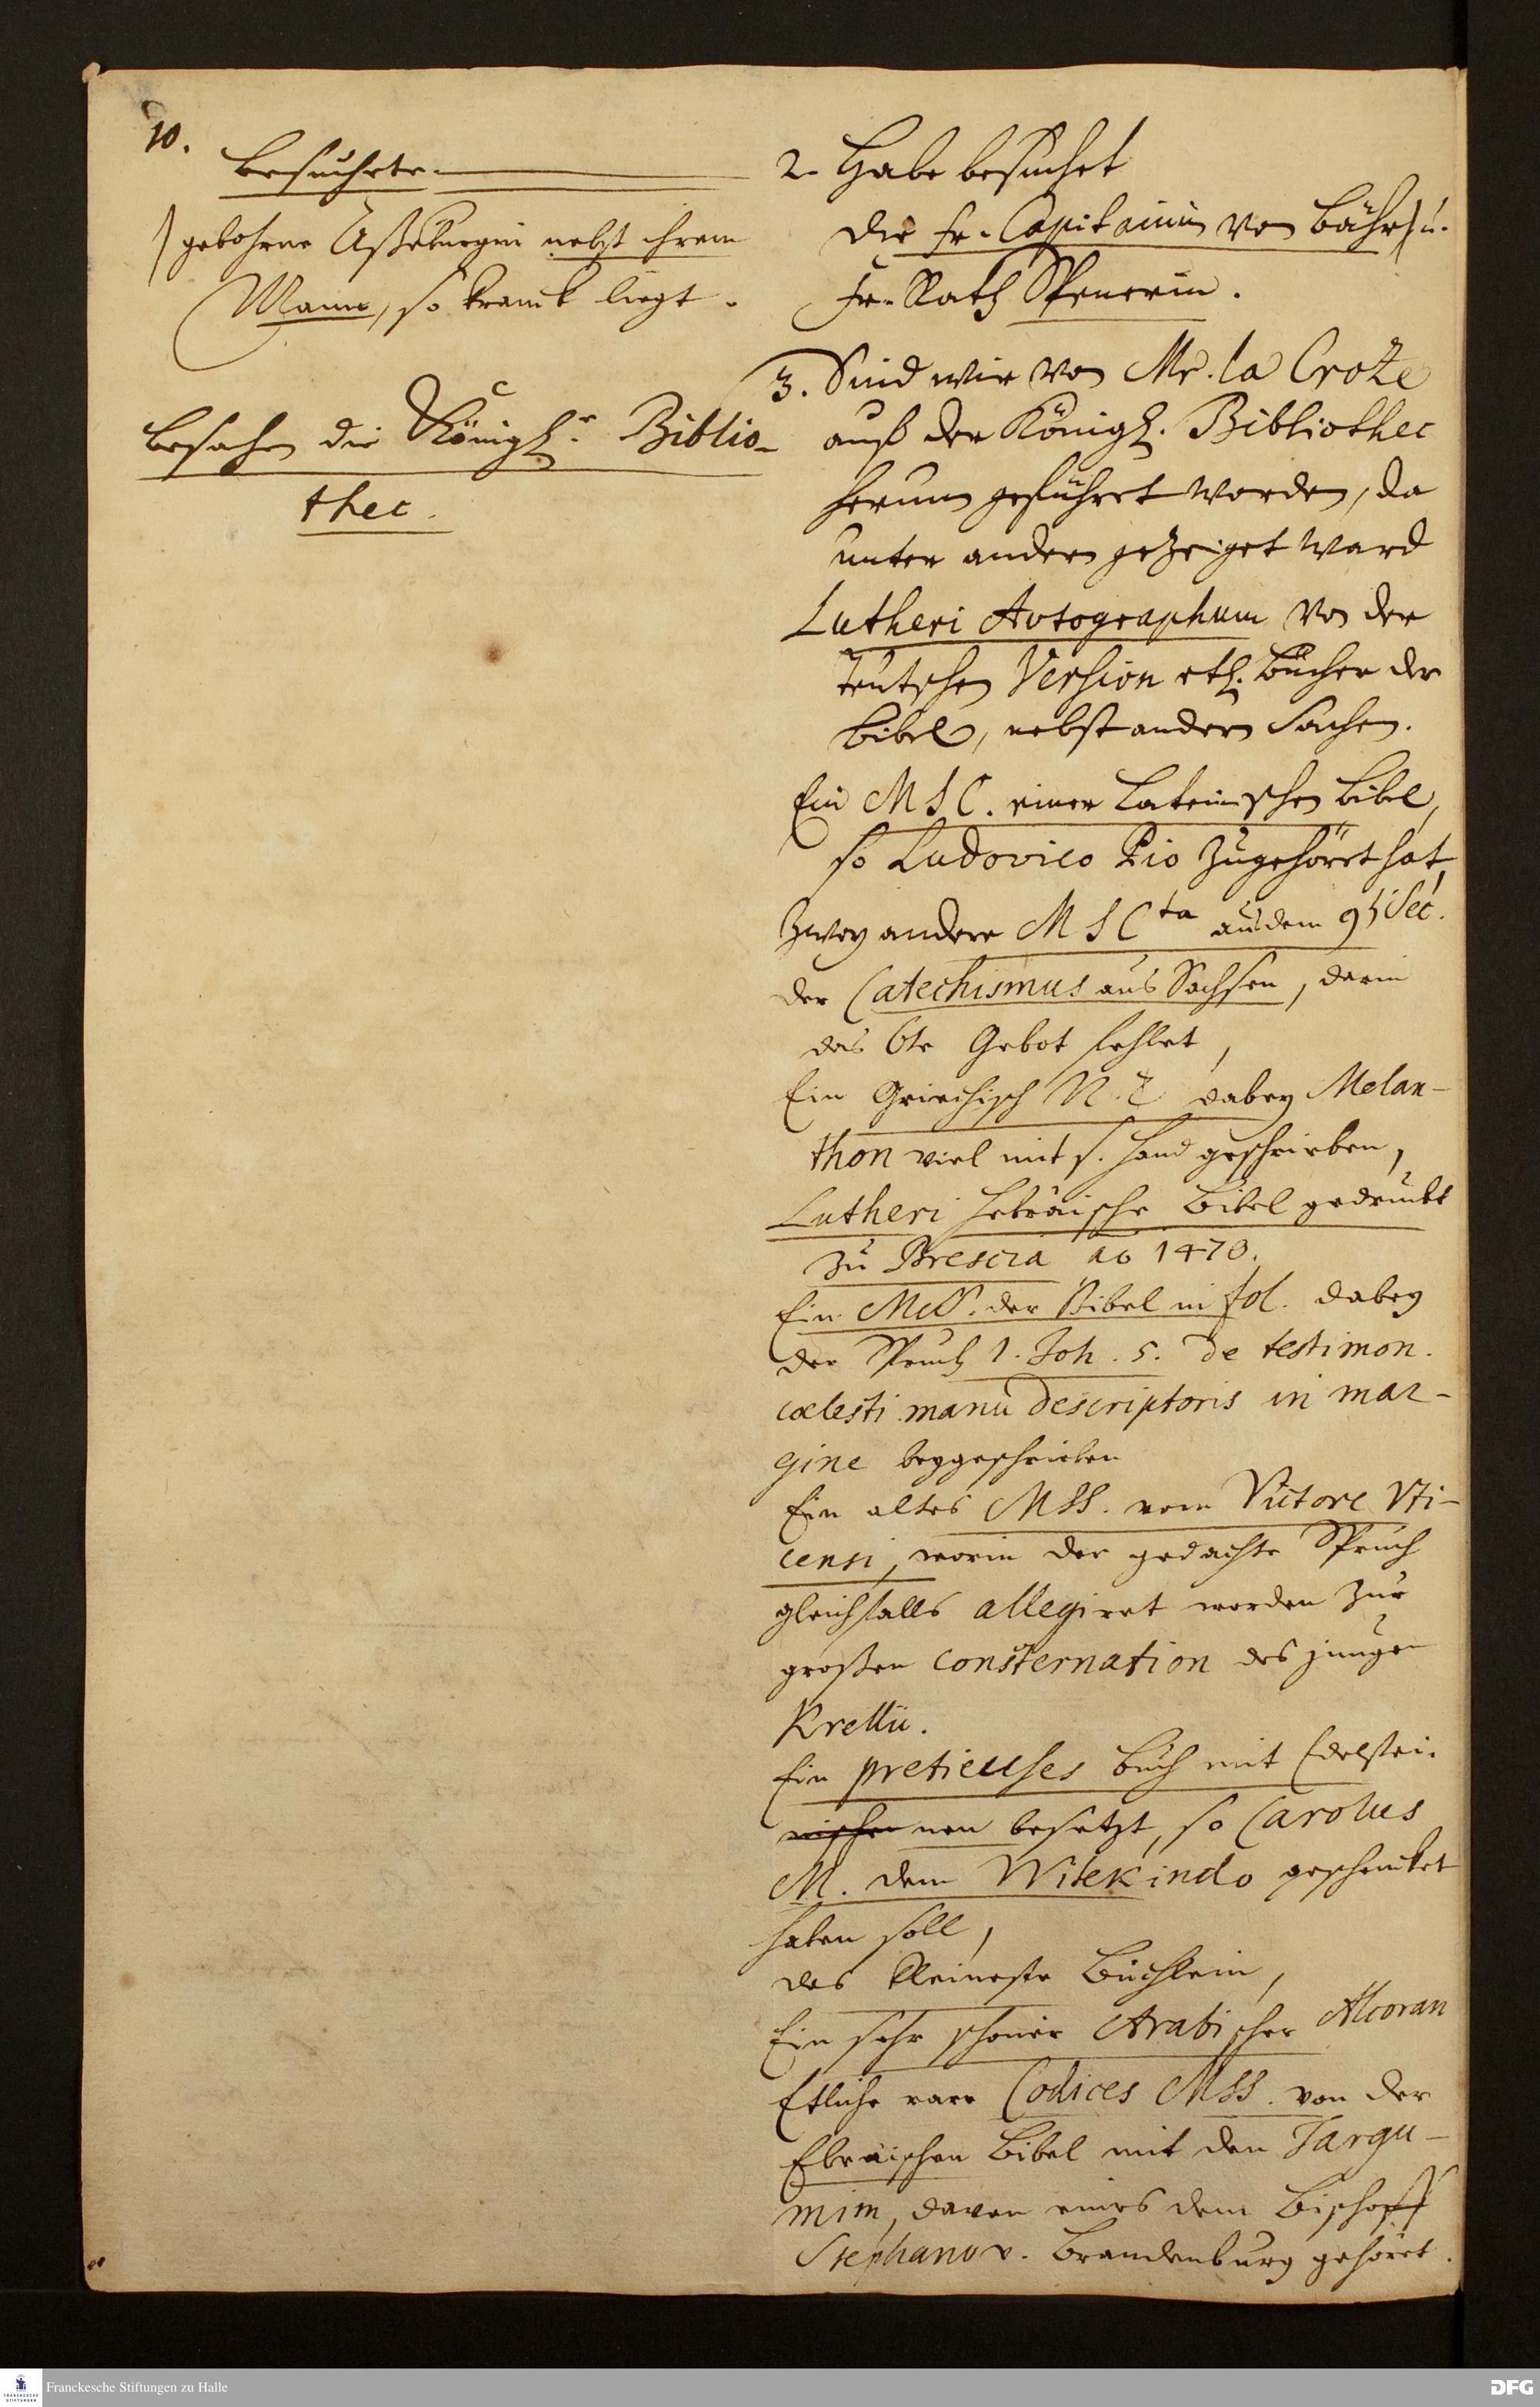 10.
Besuchte.
) gebohrne Aßeburgin nebst ihrem
Mann, so kranck liegt.
Besahen die Königl. Biblio-
thec.
2. Habe besuchet
die Fr. Capitainin von Bähr) u.
Fr. Rath Spenerin.
3. Sind wir von Mr. la Croze
auf der Königl. Bibliothec
herum geführet worden, da
unter andern gezeiget ward
Lutheri Avtographum von der
Teutschen Version etl. Bücher der
Bibel, nebst andern Sachen.
Ein MSC. einer Lateinischen Bibel,
so Ludovico Pio zugehöret hat,
Zwey andere MSCta aus dem 9t Sec.
der Catechismus aus Sachsen, darin
das 6te Gebot fehlet,
Ein Griechisch N. T. dabey Melan-
thon viel mit s. Hand geschrieben,
Lutheri Hebräische Bibel gedruckt
zu Brescia ao 1470.
Ein MSS. der Bibel in fol. dabey
der Spruch 1. Joh. 5. de testimon.
cœlesti manu descriptoris in mar-
gine beygeschrieben
Ein altes MSS. vom Victore Vti-
censi, worin der gedachte Spruch
gleichfalls allegiret worden zur
großen consternation des jungen
Krellii.
Ein pretieuses Buch mit Edelstei-
nen besetzt, so Carolus
M. dem Witekindo geschencket
haben soll,
das kleineste Büchlein,
Ein sehr schöner Arabischer Alcoran
Etliche rare Codices MSS. von der
Ebräischen Bibel mit den Targu-
mim, davon eines dem Bischoff
Stephano v. Brandenburg gehöret.
Franckesche Stiftungen zu Halle
FRANCKESCHE
STIFTUNGEN
DFG